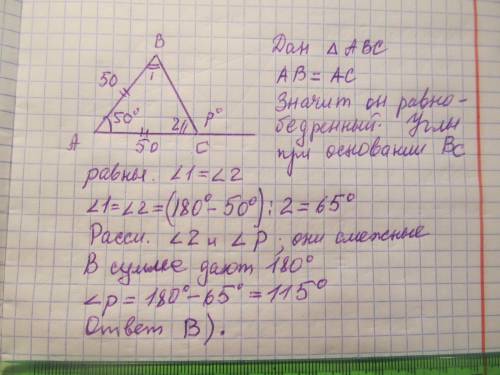 B
Дан △ ABC
50
1
AB = AC
50° 2 p°
Значит он равно-
A 50 C
бедренный. Углы
при основании BC
равны. ∠1=∠2
∠1=∠2=(180°-50°):2=65°
Рассм. ∠2 и ∠P; они смежные
В сумме дают 180°
∠p = 180°-65° = 115°
Ответ B).